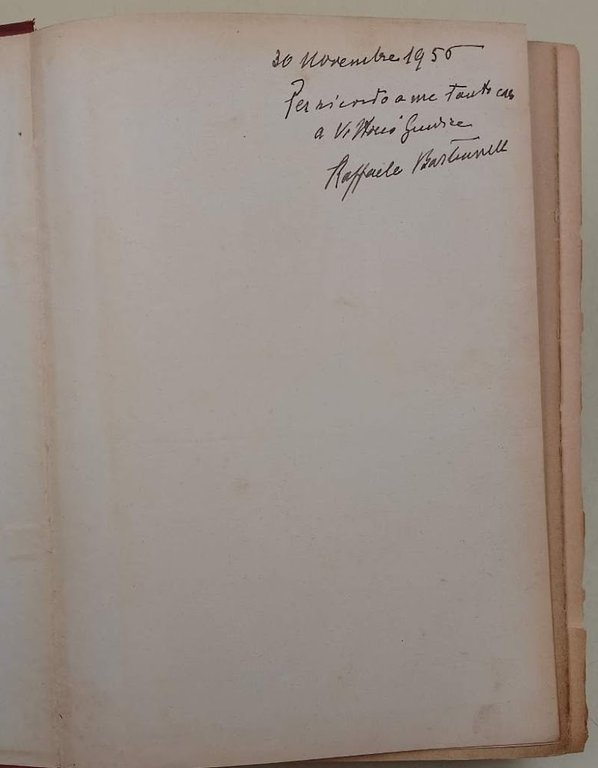 30 Novembre 1956
Per ricordo a me tanto caro
a Vittorio Giudice
Raffaele Bastianelli